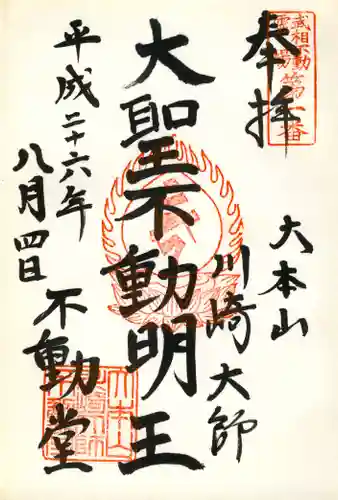 奉拝
武相不動
霊場第一番
大本山
川崎大師
大聖不動明王
平成二十六年
八月四日
不動堂